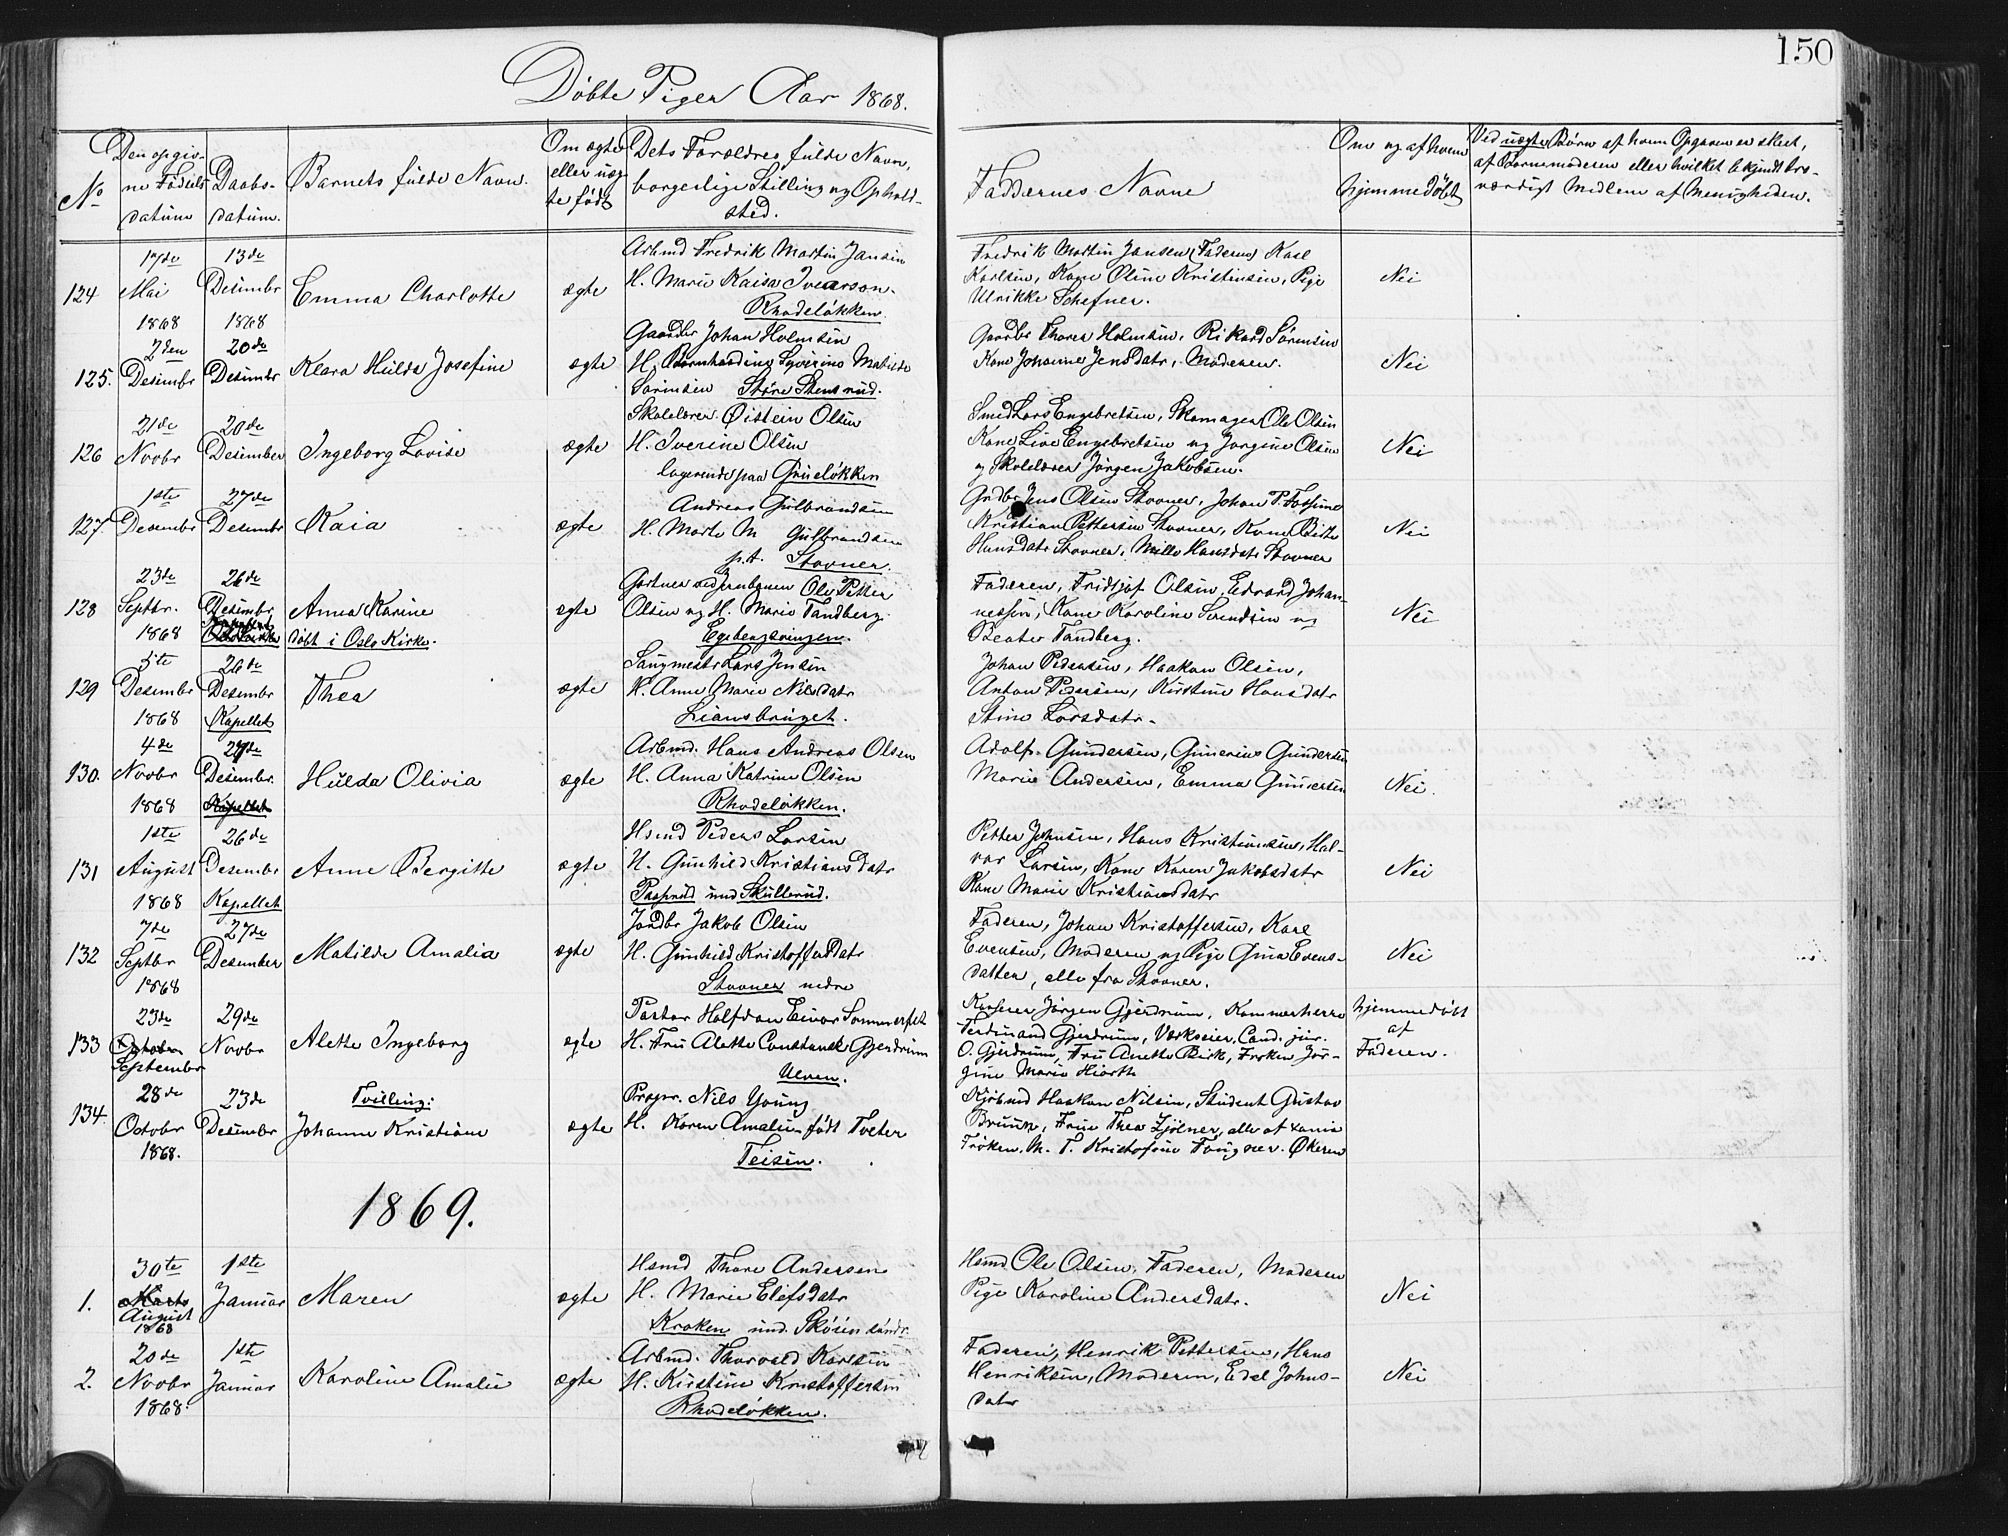 150
Døbte Piger Aar 1868.
No
Den opgiv-
ne Fødsels
datum
Daabs-
datum.
Barnets fulde Navn.
Om ægte
eller uæg-
te født
Dets Forældres fulde Navn,
borgerlige Stilling og Ophold-
sted.
Faddernes Navne
Om og af hvem
hjemmedøbt
Ved uægte Børn af hvem Opgaven er skeet,
af Barnemoderen eller hvilket bekjendt tro-
værdigt Medlem af Menigheden.
124
17de
Mai
1868
13de
Desembr
1868
Emma Charlotte
ægte
Arbmd Fredrik Martin Jansen
H. Marie Kaisa Ivarson.
Rhodeløkken.
Fredrik Martin Jansen (Faderen) Karl
Karlsen, Kone Oline Kristensen, Pige
Ulrikke Schefner.
Nei
125.
2den
Desembr
20de
Desembr
Klara Hilda Josefine
ægte
Gaardbr Johan Holmsen
H. Bernhardine Severine Matilde
Sørensen Støre Stensrud.
Gaardbr Thorer Holmsen, Rikard Sørensen
Kone Johanne Jensdatr, Moderen.
Nei
126
21de
Novbr
20de
Desember
Ingeborg Lovise
ægte
Skolelærer Øistein Olsen
H. Iverine Olsen
logerende paa Grüneløkken
Smed Lars Engebretsen, Skomager Ole Olsen
Kone Live Engebretsen og Jørgine Olsen
og Skolelærer Jørgen Jakobsen.
Nei
127.
1ste
Decembr
27de
Desembr
Kaia
ægte
Andreas Gulbrandsen
H. Marte M Gulbrandsen
p.t. Stovner.
Grdbr Jens Olsen Stovner, Johan P. Fossum
Kristian Pettersen Stovner, Kone Berte
Hansdatr Stovner, Mille Hansdatr Stovner
Nei
128
23de
Septbr.
1868
26de
Desembr
Anna Karine
døbt i Oslo Kirke.
ægte
Gartner ved Jernbanen Ole Petter
Olsen og H. Marie Tandberg.
Egebergsvingen.
Faderen, Fridtjof Olsen, Edvard Johan-
nessen, Kone Karoline Svendsen og
Beater Tandberg.
Nei
129
5te
Desembr
1868
26de
Desembr
Kapellet
Thea
ægte
Saugmestr Lars Jensen
H. Anne Marie Nilsdatr
Liansbruget.
Johan Pedersen, Haakon Olsen,
Anton Pedersen, Kirstine Hansdatr
Stine Larsdatr.
130.
4de
Novbr
1868
27de
Desembr.
Kapellet
Hulda Olivia
ægte
Arbmd. Hans Andreas Olsen
H. Anna Katrine Olsen
Rhodeløkken.
Adolf Gundersen, Gunerius Gundersen
Marie Andersen, Emma Gundersen
Nei.
131
1ste
August
1868
26de
Desembr
Kapellet
Anne Bergitte
ægte
Hsmd Peder Larsen
H. Gunhild Kristiansdatr
und Skullerud.
Petter Johnsen, Hans Kristiansen, Hal-
vor Larsen, Kone Karen Jakobsdatr
Kone Marie Kristiansdatr
Nei
132
7de
Septbr
1868
27de
Desember
Matilde Amalia
ægte
Jordbr Jakob Olsen
H. Gunhild Kristoffersdatr
Stovner nedre
Faderen, Johan Kristoffersen, Karl
Evensen, Moderen og Pige Gina Evens-
datter, alle fra Stovner.
Nei
133
23de
Oktober
September
29de
Novbr
Alette Ingeborg
ægte
Pastor Halfdan Einar Sommerfelt
H. Fru Alette Constance Gjerdrum
Ulven.
Kasserer Jørgen Gjerdrum, Kammerherre
Ferdinand Gjerdrum, Værkseier, Cand. jur.
O. Gjerdrum, Fru Anette Birk, Frøken Jør-
gine Marie Hiorth
hjemmedøbt
af
Faderen.
134.
28de
Octobr
1868.
23de
Desembr
Tvilling:
Johanne Kristiane
ægte
Propr. Nils Young
H. Karen Amalie født Tveter
Teisen.
Kjøbmd Haakon Nilsen, Student Gustav
Bruun, Frue Thea Zjølner, alle af Xania
Frøken M. T. Kristofine Faugner. Økern
1869.
1.
30te
Marts
August
1868
1ste
Januar
Maren
ægte
Hsmd Thore Andersen
H. Marie Elefsdatr
Kroken und. Skøien søndr.
Hsmd Ole Olsen, Faderen, Moderen
Pige Karoline Andersdatr.
Nei
2.
20de
Novbr
1868.
1ste
Januar
Karoline Amalie
ægte
Arbmd. Thorvald Karlsen
H. Kirstine Kristoffersen
Rhodeløkken.
Faderen, Henrik Pettersen, Hans
Henriksen, Moderen, Edel Johns-
datr
Nei